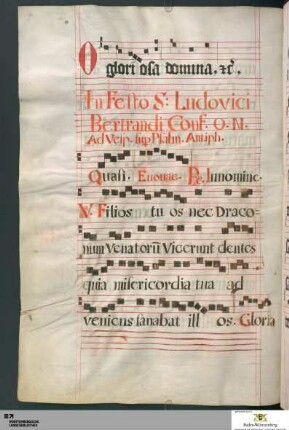 O
glori osa domina, ꝛc̃.
In Festo S: Ludovici
Bertrandi Conf. O. N.
Ad Vesp. sup Psalm. Antiph.
Quasi. Euouae. In nomine.
V. Filios tu os nec Draco-
num Venatorū Vicerunt dentes
quia misericordia tua ad
veniens sanabat ill os. Gloria
Baden-Württemberg